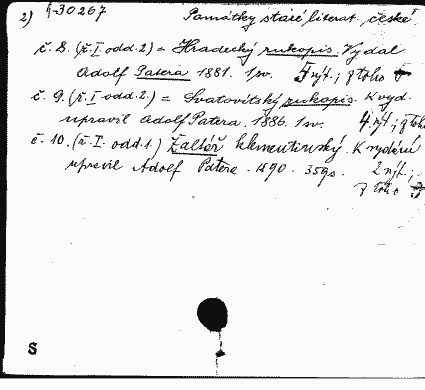 2) §-30267 Památky staré literat. české.
č. 8. (ř. I odd. 2) = Hradecký rukopis. Vydal
Adolf Patera 1881. 1 sv. 5 výt., z toho
č. 9. (ř. I odd. 2.) = Svatovítský rukopis. K vyd.
upravil Adolf Patera. 1886. 1 sv. 4 výt., z toho
č. 10. (ř. I. odd. 1.) Žaltář klementinský. K vydání
upravil Adolf Patera. 1890. 359 s. 2 výt.,
z toho
S